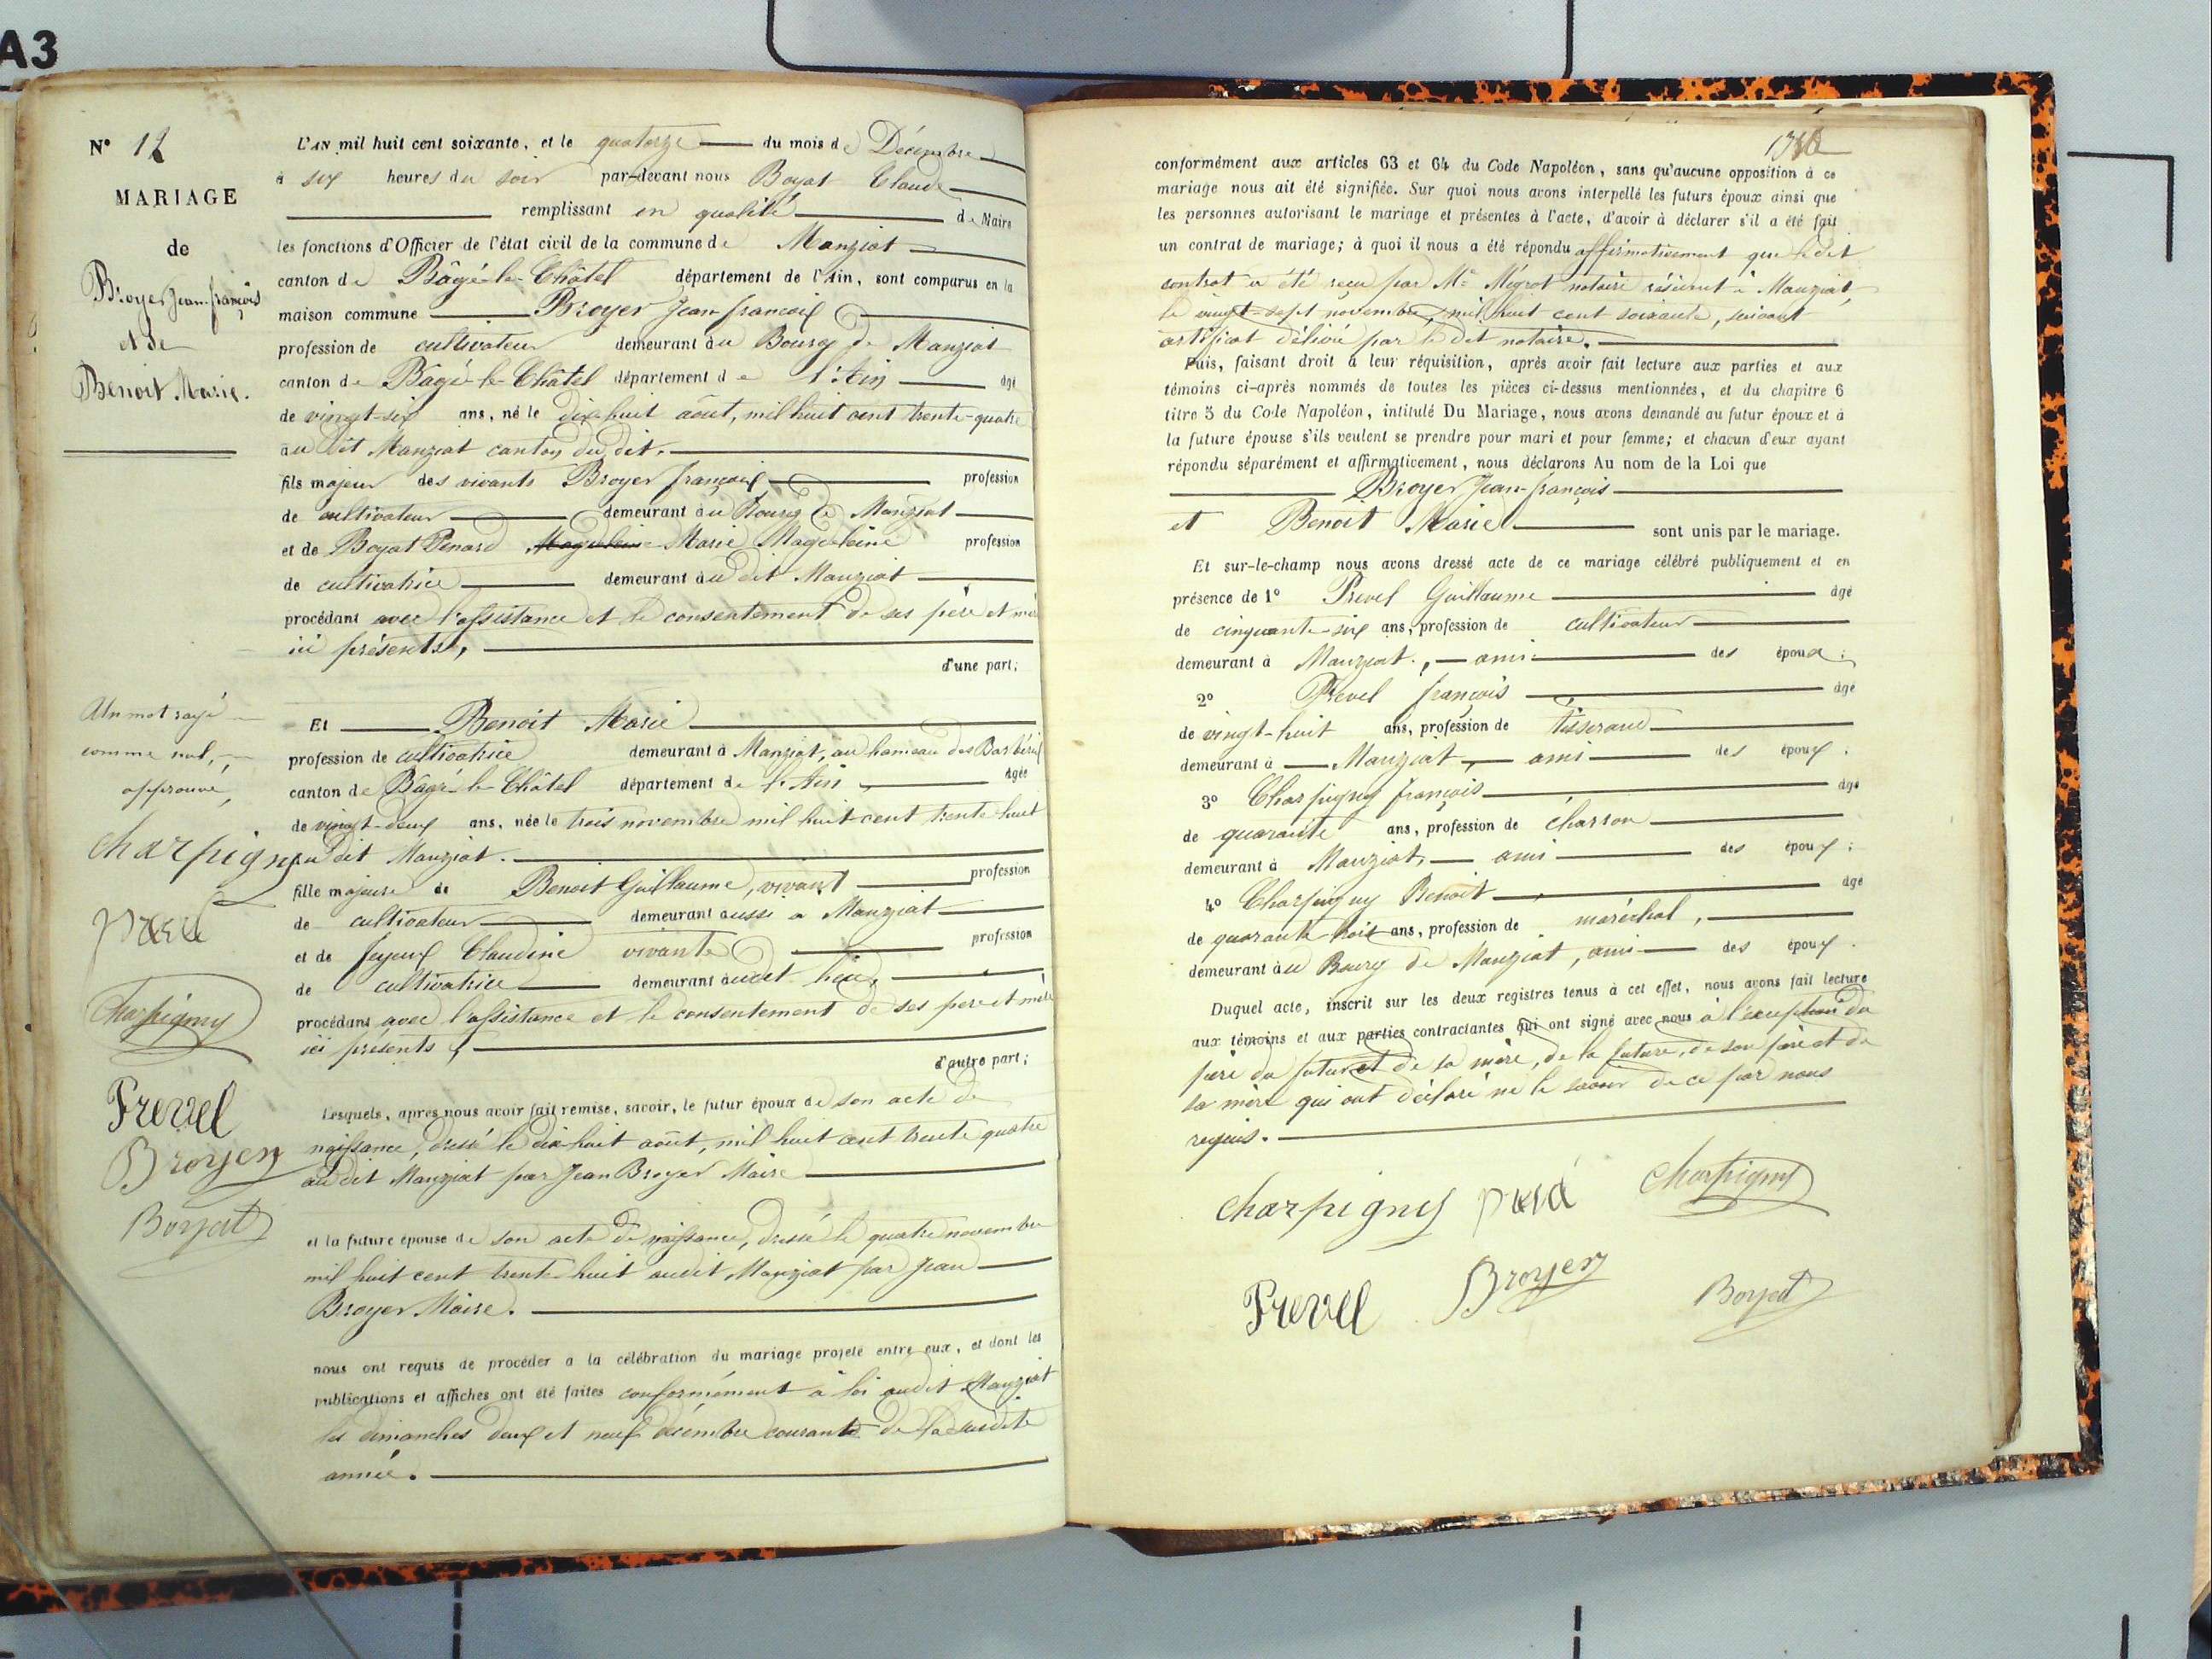 A3
N° 12
MARIAGE
de
Broyer Jean-françois
et de
Benoit Marie.
L'AN mil huit cent soixante, et le quatorze du mois de Décembre
à six heures du soir par-devant nous Boyat Claude
remplissant en qualité de Maire
les fonctions d'Officier de l'état civil de la commune de Manziat
canton de Bâgé-le-Châtel département de l'Ain, sont comparus en la
maison commune Broyer Jean françois
profession de cultivateur demeurant au Bourg de Manziat
canton de Bâgé-le-Châtel département de l'Ain âgé
de vingt-six ans, né le dix-huit août, mil huit cent trente-quatre
au dit Manziat canton du dit.
fils majeur des vivants Broyer françois profession
de cultivateur demeurant au Bourg de Manziat
et de Boyat Penard Magdeleine Marie Magdeleine profession
de cultivatrice demeurant au dit Manziat
procédant avec l'assistance et le consentement de ses père et mère
ici présents,
d'une part;
Un mot rayé
comme nul,
approuvé,
charpigny
Charpigny
Prevel
Broyer
Boyat
Et Benoit Marie
profession de cultivatrice demeurant à Manziat, au hameau des
canton de Bâgé-le-Châtel département de l'Ain âgée
de vingt-deux ans, née le trois novembre mil huit cent trente-huit
au dit Manziat.
fille majeure de Benoit Guillaume, vivant profession
de cultivateur demeurant aussi à Manziat
et de Joyeux Claudine vivante profession
de cultivatrice demeurant audit lieu,
procédant avec l'assistance et le consentement de ses père et mère
ici présents,
d'autre part;
Lesquels, après nous avoir fait remise, savoir, le futur époux de son acte de
naissance, dressé le dix-huit août, mil huit cent trente quatre
audit Manziat par Jean Broyer Maire
et la future épouse de son acte de naissance, dressé le quatre novembre
mil huit cent trente-huit audit Manziat par Jean
Broyer Maire.
nous ont requis de procéder à la célébration du mariage projeté entre eux, et dont les
publications et affiches ont été faites conformément à loi audit Manziat
les dimanches deux et neuf décembre courants de la susdite
année.
conformément aux articles 63 et 64 du Code Napoléon, sans qu'aucune opposition à ce
mariage nous ait été signifiée. Sur quoi nous avons interpellé les futurs époux ainsi que
les personnes autorisant le mariage et présentes à l'acte, d'avoir à déclarer s'il a été fait
un contrat de mariage; à quoi il nous a été répondu affirmativement que le dit
contrat a été reçu par Me Mégrot notaire résidant à Manziat,
le vingt-sept novembre, mil huit cent soixante, suivant
certificat délivré par le dit notaire.
Puis, faisant droit à leur réquisition, après avoir fait lecture aux parties et aux
témoins ci-après nommés de toutes les pièces ci-dessus mentionnées, et du chapitre 6
titre 5 du Code Napoléon, intitulé Du Mariage, nous avons demandé au futur époux et à
la future épouse s'ils veulent se prendre pour mari et pour femme; et chacun d'eux ayant
répondu séparément et affirmativement, nous déclarons Au nom de la Loi que
Broyer Jean-françois
et Benoit Marie sont unis par le mariage.
Et sur-le-champ nous avons dressé acte de ce mariage célébré publiquement et en
présence de 1° Prevel Guillaume âgé
de cinquante-six ans, profession de cultivateur
demeurant à Manziat, ami des époux;
2° Prevel françois âgé
de vingt-huit ans, profession de tisserand
demeurant à Manziat, ami des époux;
3° Charpigny françois âgé
de quarante ans, profession de charron
demeurant à Manziat, ami des époux;
4° Charpigny Benoit âgé
de quarante-trois ans, profession de maréchal,
demeurant au Bourg de Manziat, ami des époux.
Duquel acte, inscrit sur les deux registres tenus à cet effet, nous avons fait lecture
aux témoins et aux parties contractantes qui ont signé avec nous à l'exception du
père du futur et de sa mère, de la future, de son père et de
sa mère qui ont déclaré ne le savoir de ce par nous
requis.
charpigny Charpigny
Prevel Broyer Boyat